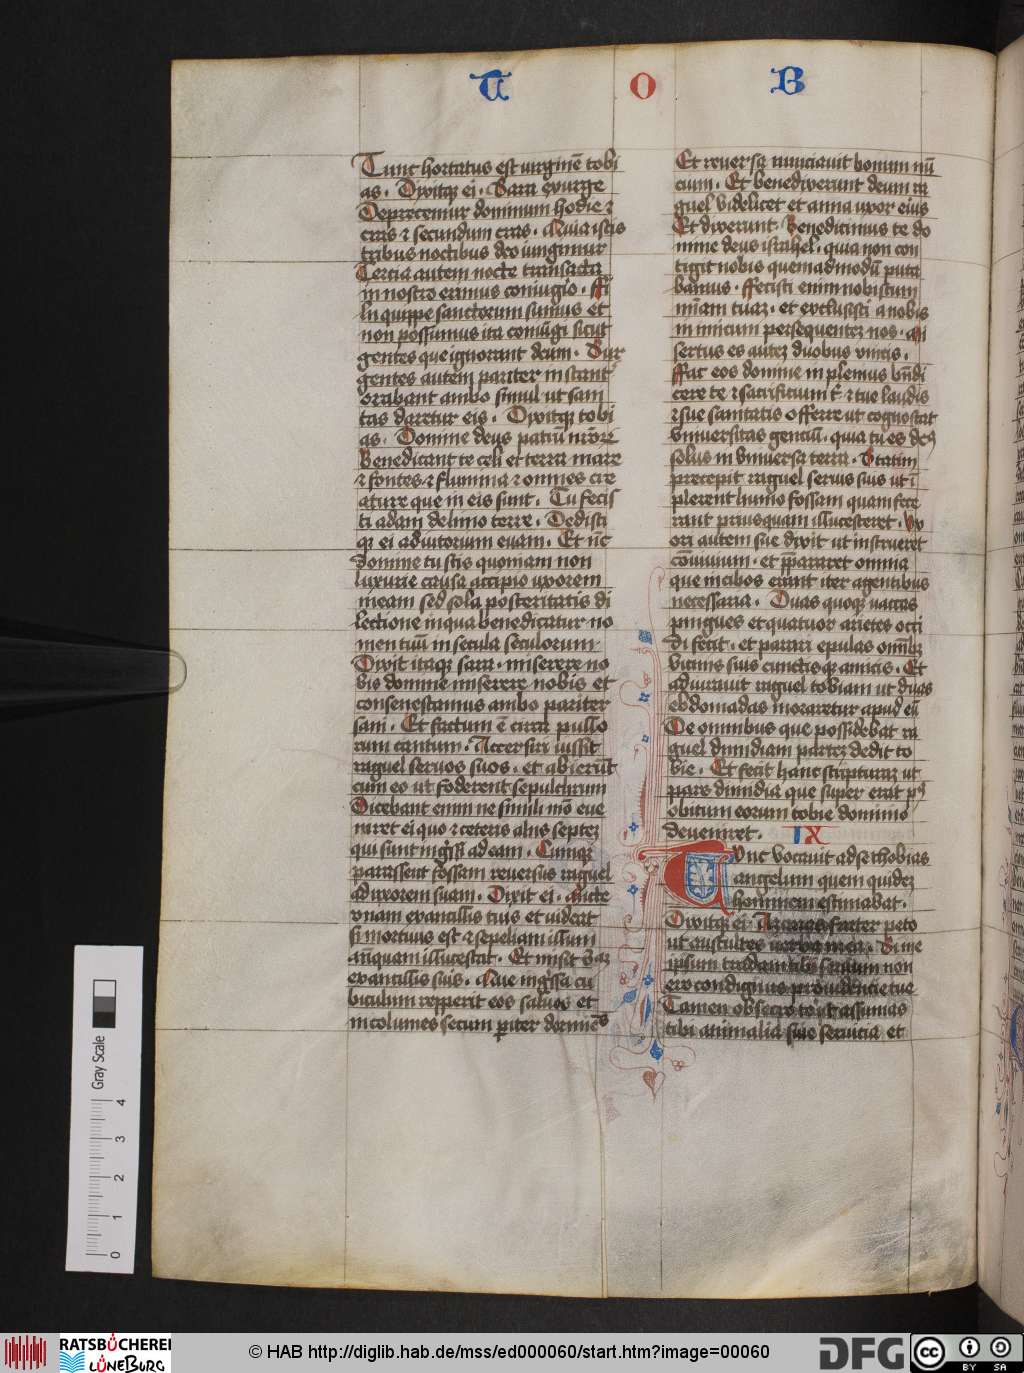 T O B
Tunc hortatus est virginē tobi
as. Dixitqꝫ ei. Sara exurge
Deprecemur dominum hodie ⁊
cras ⁊ secundum cras. Quia istis
tribus noctibus deo iungimur
Tercia autem nocte transacta
in nostro erimus coniugio. ffi
lii quippe sanctorum sumus et
non possumus ita coniūgi sicut
gentes que ignorant deum. Sur
gentes autem pariter instant͛
orabant ambo simul ut sani
tas daretur eis. Dixitqꝫ tobi
as. Domine deus patrū nr̄orū
Benedicant te celi et terra mare
⁊ fontes ⁊ flumina ⁊ omnes cre
ature que in eis sunt. Tu fecis
ti adam de limo terre. Dedisti
qꝫ ei adiutorium euam. Et nc̄
domine tu scis quoniam non
luxurie causa accipio uxorem
meam sed sola posteritatis di
lectione in qua benedicatur no
men tuū in secula seculorum.
Dixit itaqꝫ sara. miserere no
bis domine miserere nobis et
consenescamus ambo pariter
sani. Et factum ē circa pullo
rum cantum. Accersiri iussit
raguel seruos suos. et abierūt
cum eo ut foderent sepulchrum
Dicebant enim ne simili mō eue
niret ei quo ⁊ ceteris aliis septeꝫ
qui sunt ingr̄ssi ad eam. Cumqꝫ
parassent fossam reuersus raguel
ad uxorem suam. Dixit ei. Mitte
vnam ex ancillis tuis et uideat
si mortuus est ⁊ sepeliam illum
antequam illucescat. Et misit vnā
ex ancillis suis. Que ingr̄ssa cu
biculum repperit eos saluos et
incolumes secum ꝑiter dormiēs
Et reuersa nunciauit bonum nū
cium. Et benedixerunt deum ra
guel videlicet et anna uxor eius
Et dixerunt. Benedicimus te do
mine deus israhel. quia non con
tigit nobis quemadmodū puta
bamus. ffecisti enim nobiscum
mīam tuaꝫ. et exclusisti a nobis
inimicum persequenteꝫ nos. mi
sertus es auteꝫ duobus vnicis.
ffac eos domine in plenius bn̄di
cere te ⁊ sacrificium t͛ ⁊ tue laudis
⁊ sue sanitatis offerre ut cognoscat
vniuersitas genciū. quia tu es deꝰ
solus in vniuersa terra. Statim
precepit raguel seruis suis ut ī
plerent humo fossam quam fece
rant priusquam illucesceret. Ux
ori autem sue dixit ut instrueret
cōuiuium. et p̄pararet omnia
que in cibos erant iter agentibus
necessaria. Duas quoqꝫ uaccas
pingues et quatuor arietes occi
di fecit. et parari epulas omībꝫ
vicinis suis cunctisqꝫ amicis. Et
adiurauit raguel tobiam ut duas
ebdomadas moraretur apud eū
De omnibus que possidebat ra
guel dimidiam parteꝫ dedit to
bie. Et fecit hanc scripturaꝫ ut
pars dimidia que super erat pꝰ
obitum eorum tobie dominio
deueniret. IX
Tunc vocauit ad se thobias
angelum quem quideꝫ
hominem estimabat.
Dixitqꝫ ei. Azarias frater peto
ut auscultes verba mea. Si me
ipsum tradam tibi seruum non
ero condignus prouidencie tue
Tamen obsecro te ut assumas
tibi animalia siue seruicia et
Gray Scale
0 1 2 3 4
RATSBÜCHEREI
LÜNEBURG
© HAB http://diglib.hab.de/mss/ed000060/start.htm?image=00060
DFG
cc BY SA